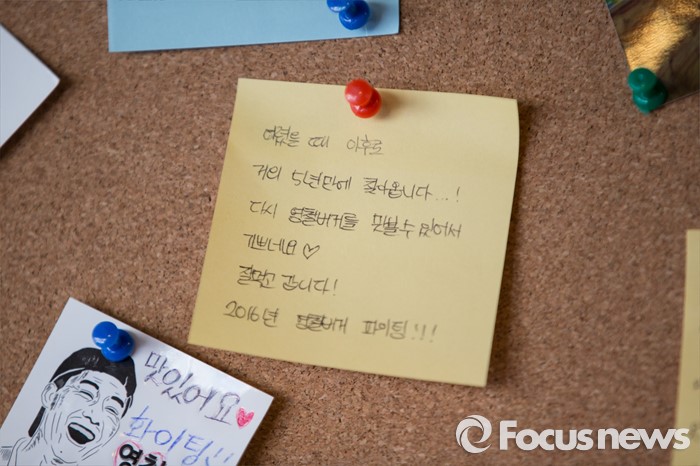 어렸을 때 이후로
거의 5년만에 찾아옵니다...!
다시 영철버거를 맛볼 수 있어서
기쁘네요♡
잘먹고 갑니다!
2016년 영철버거 파이팅!!!
맛있어요♥
화이팅!!
Focusnews